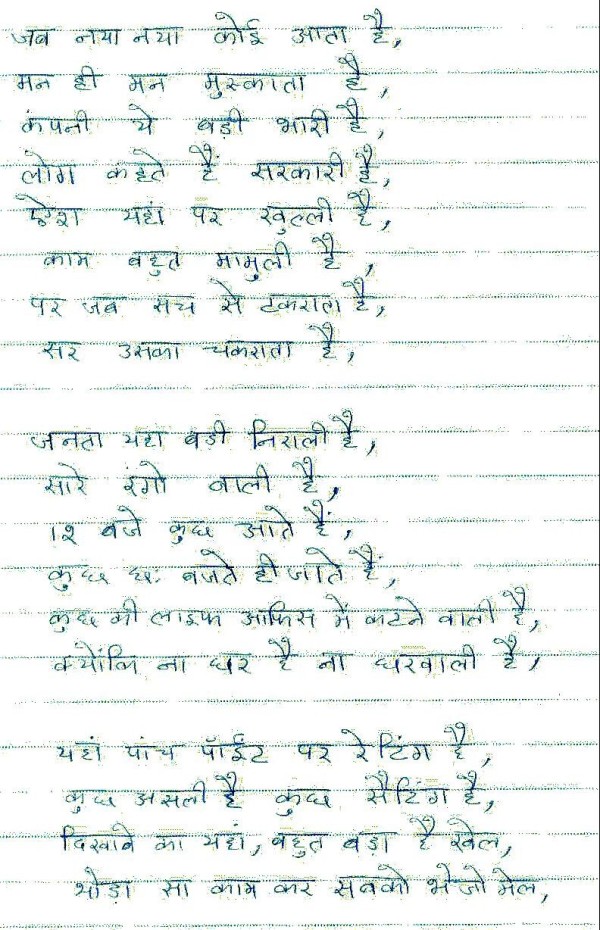 जब नया नया कोई आता है,
मन ही मन मुस्काता है,
कंपनी ये बड़ी भारी है,
लोग कहते हैं सरकारी है,
ऐश यहां पर खुल्ली है,
काम बहुत मामुली है,
पर जब सच से टकराता है,
सर उसका चकराता है,
जनता यहां बड़ी निराली है,
सारे रंगो वाली है,
१२ बजे कुछ आते हैं,
कुछ छः बजते ही जाते हैं,
कुछ की लाइफ आफिस में कटने वाली है,
क्योंकि ना घर है ना घरवाली है,
यहां पांच पॉईंट पर रेटिंग है,
कुछ असली है कुछ सैटिंग है,
दिखावे का यहां, बहुत बड़ा है खेल,
थोड़ा सा काम कर सबको भेजो मेल,